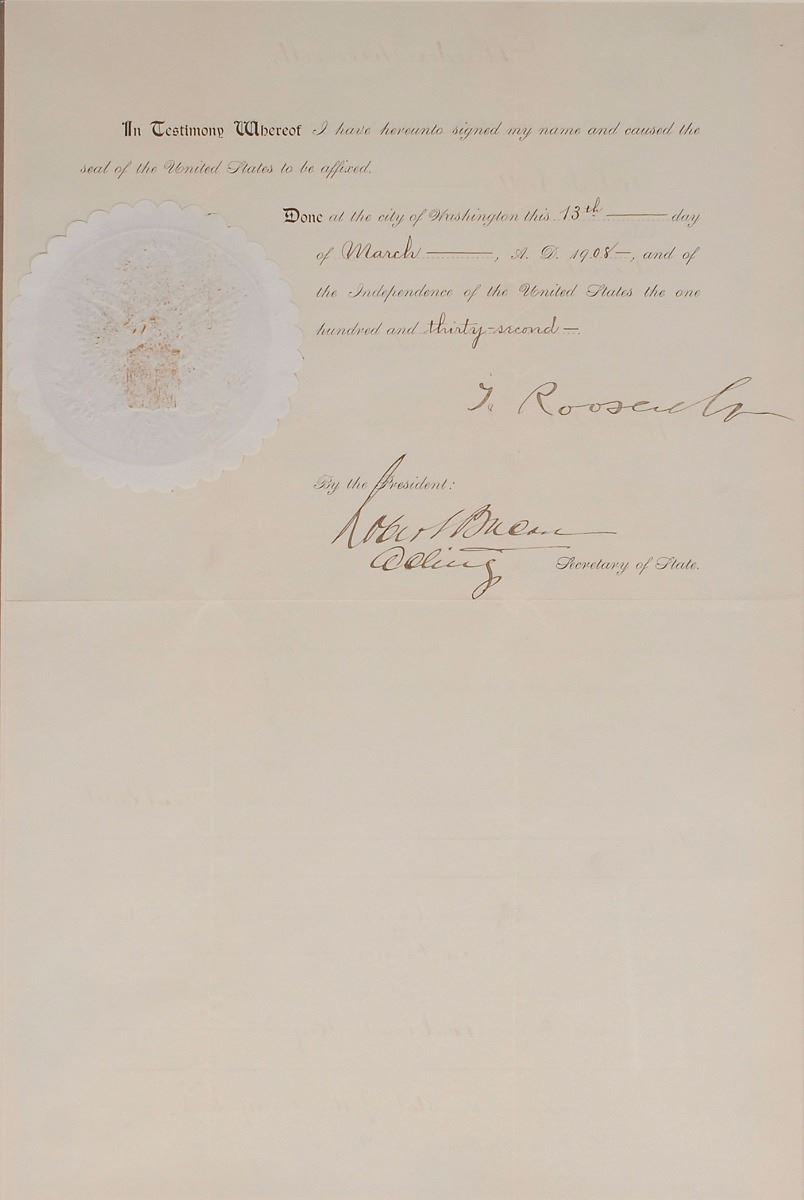 In Testimony Whereof I have hereunto signed my name and caused the
seal of the United States to be affixed.
Done at the city of Washington this 13th day
of March, A. D. 1908, and of
the Independence of the United States the one
hundred and thirty-second
T. Roosevelt
By the President:
Robert Bacon
Acting Secretary of State.